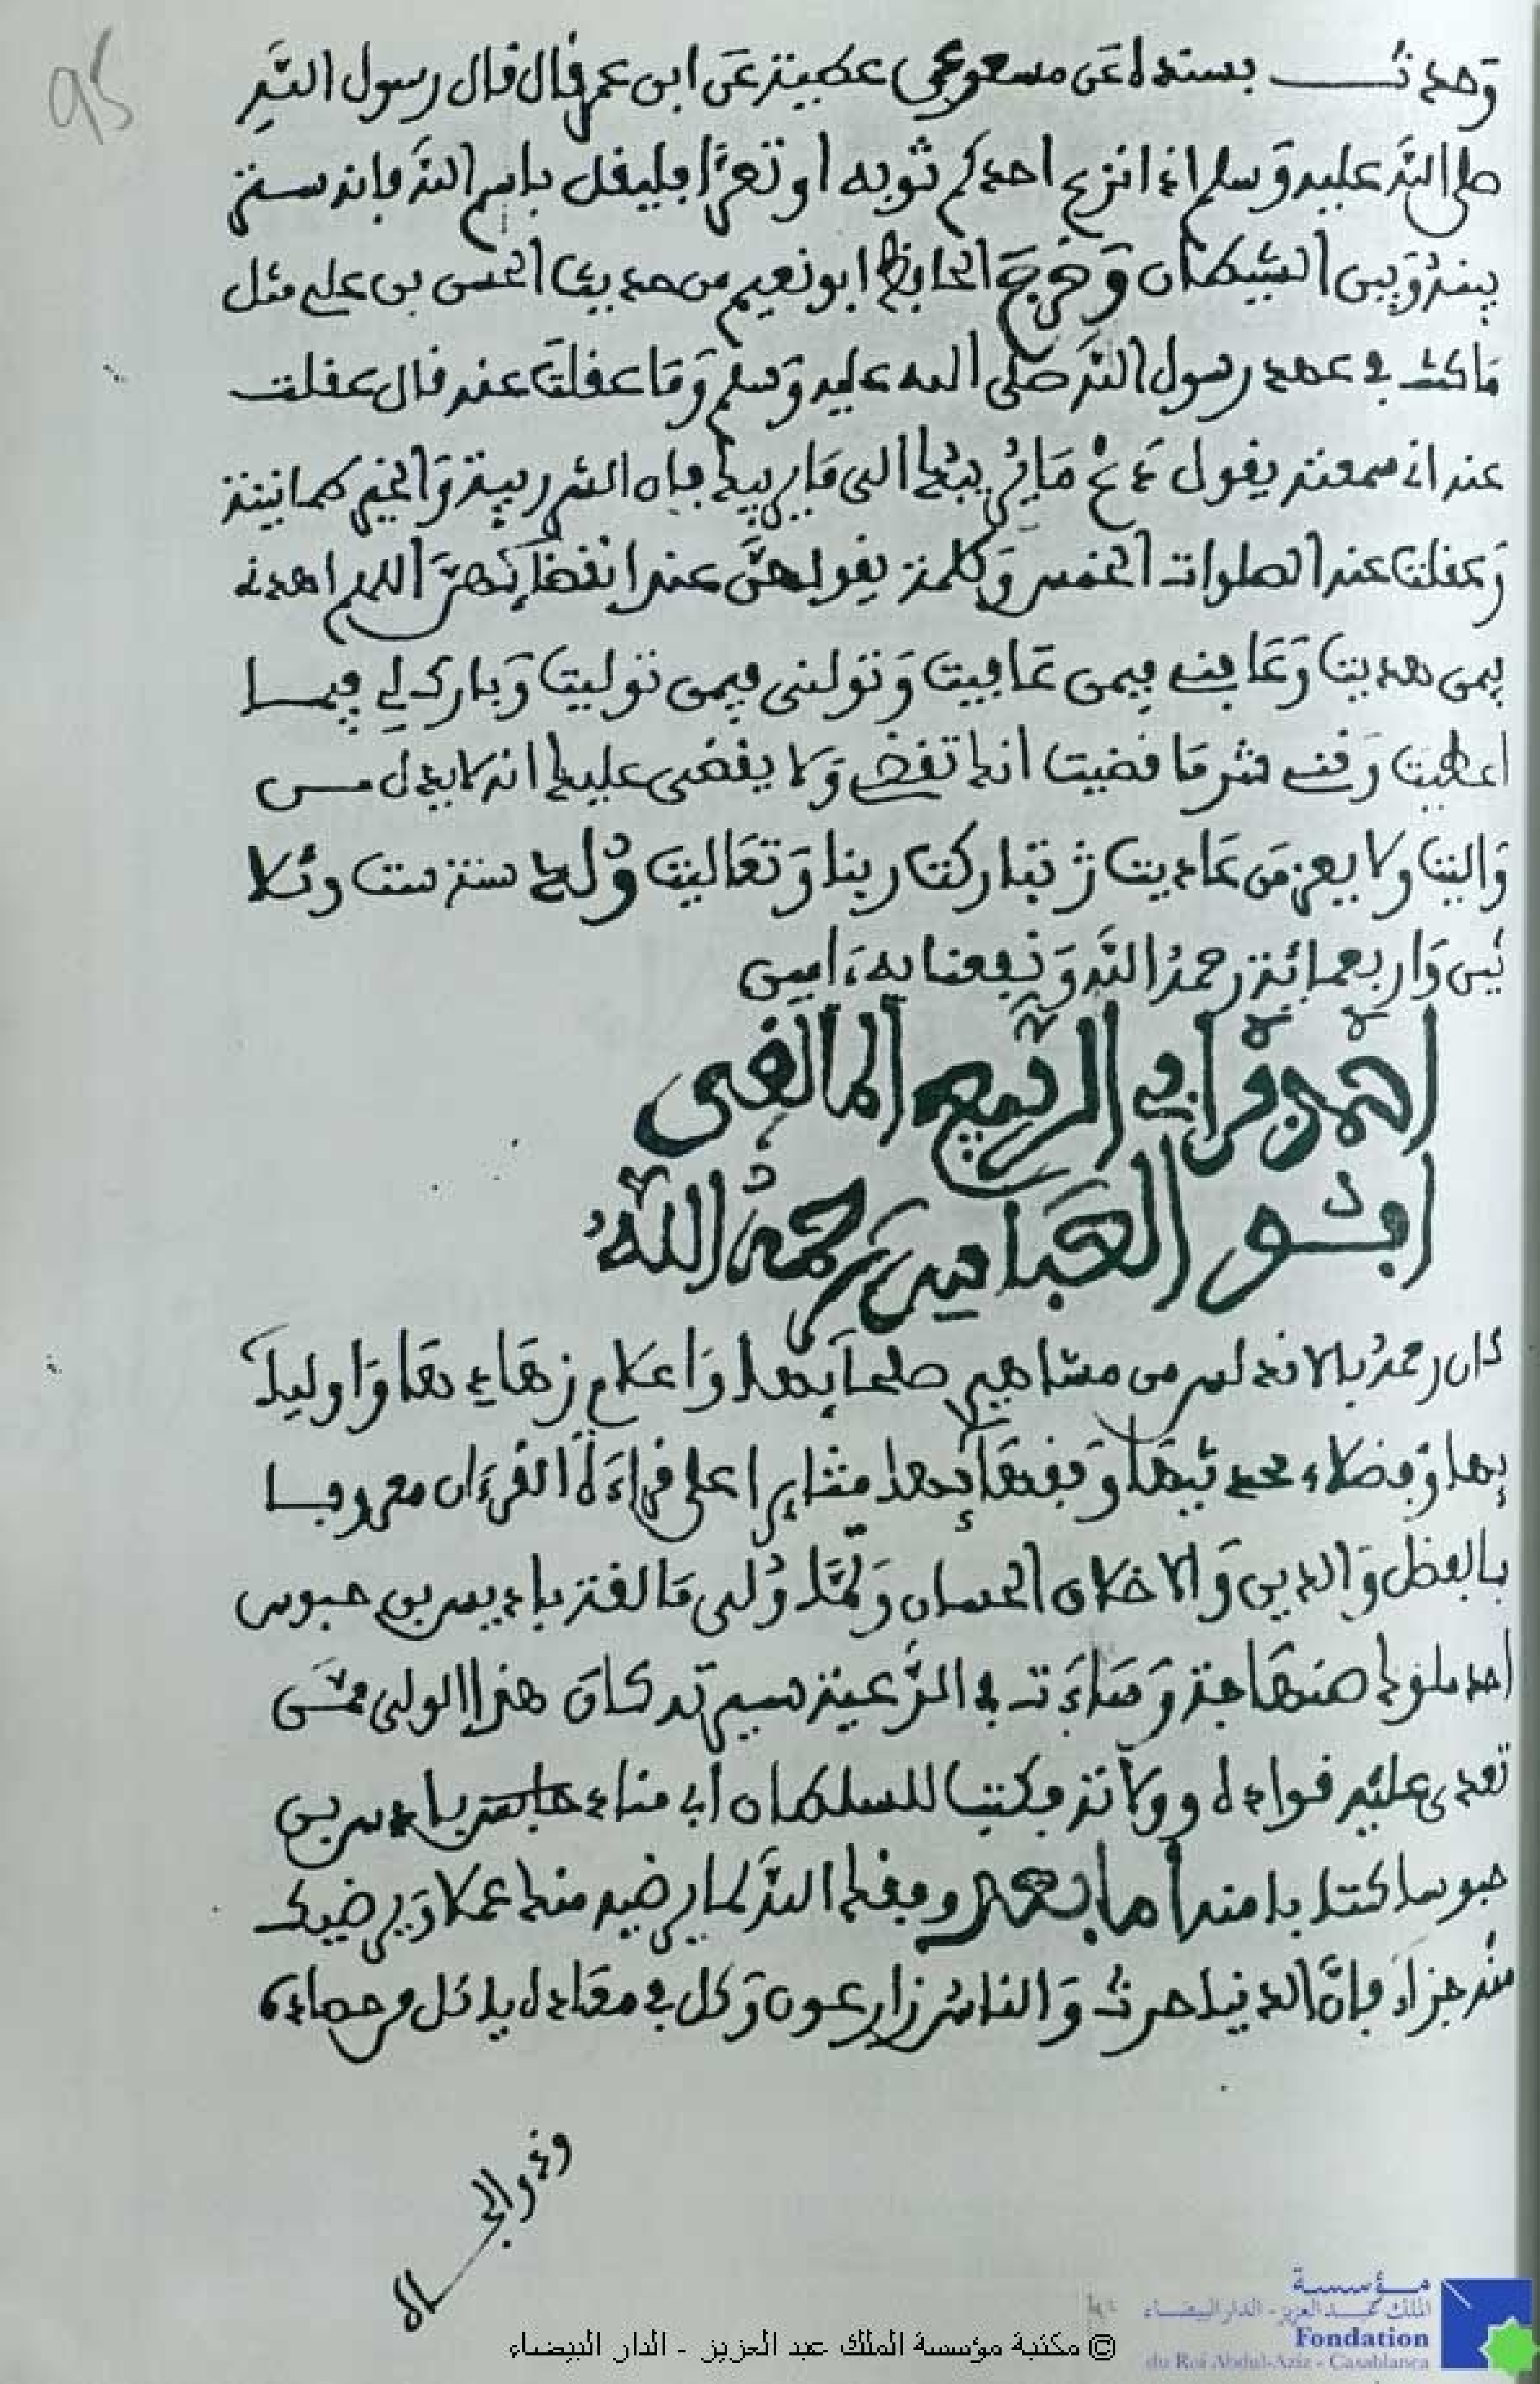 95
وحدث بسنده عن مسعر عن عطية عن ابن عمر قال قال رسول الله
صلى الله عليه وسلم اذا نزع احدكم ثوبه او تعرا فليقل باسم الله فانه ستر
بينه وبين الشيطان وخرج الحافظ ابو نعيم من حديث الحسن بن علي مثل
ما كنت في عهد رسول الله صلى الله عليه وسلم وما عقلت عنه قال عقلت
عنه اني سمعته يقول دع ما يريبك الى ما لا يريبك فان الشر ريبة والخير طمانينة
وعقلت عنه الصلوات الخمس وكلمة يقولهن عند انقضائهن اللهم اهدني
فيمن هديت وعافني فيمن عافيت وتولني فيمن توليت وبارك لي فيما
اعطيت وقني شر ما قضيت انك تقضي ولا يقضى عليك انه لا يذل من
واليت ولا يعز من عاديت تباركت ربنا وتعاليت ولد سنة ست وثلا
ثين واربعمائة رحمه الله ونفعنا به ءامين
احمد بن ابي الربيع المالقي
ابو العباس رحمه الله
كان رحمه بالاندلس من مشاهير صلحائها واعلام زهادها واوليا
بها وفضلاء محدثيها وفقهائها مثابرا على قراءة القرءان معروفا
بالفضل والدين والاخلاق الحسان ولما ولى مالقة باديس بن حبوس
احد ملوك صنهاجة وساءت في الرعية سيرته كان هذا الولي ممن
تعدى عليه قواده وولاته فكتب للسلطان ابي مناد باديس بن
حبوس كتابا منه اما بعد وفقك الله لما يرضيه منك عملا ويرضيك
منه جزاء فان الدنيا حرث والناس زارعون وكل في معاده ياكل من حصاده
وذو الجلال
مؤسسة
الملك عبد العزيز - الدار البيضاء
Fondation
du Roi Abdul-Aziz - Casablanca
© مكتبة مؤسسة الملك عبد العزيز - الدار البيضاء